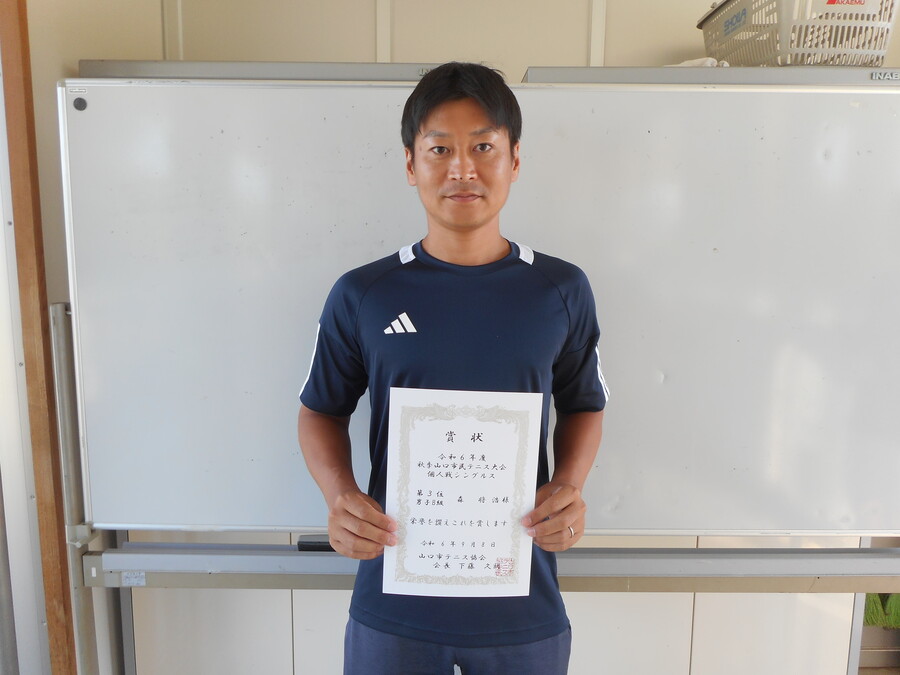 SHOWA
AKAEMU
INAB
賞状
令和6年度
秋季山口市民テニス大会
個人戦シングルス
第3位
男子B級 森 将浩様
栄誉を讃えこれを賞します
令和6年9月8日
山口市テニス協会
会長 下藤 久